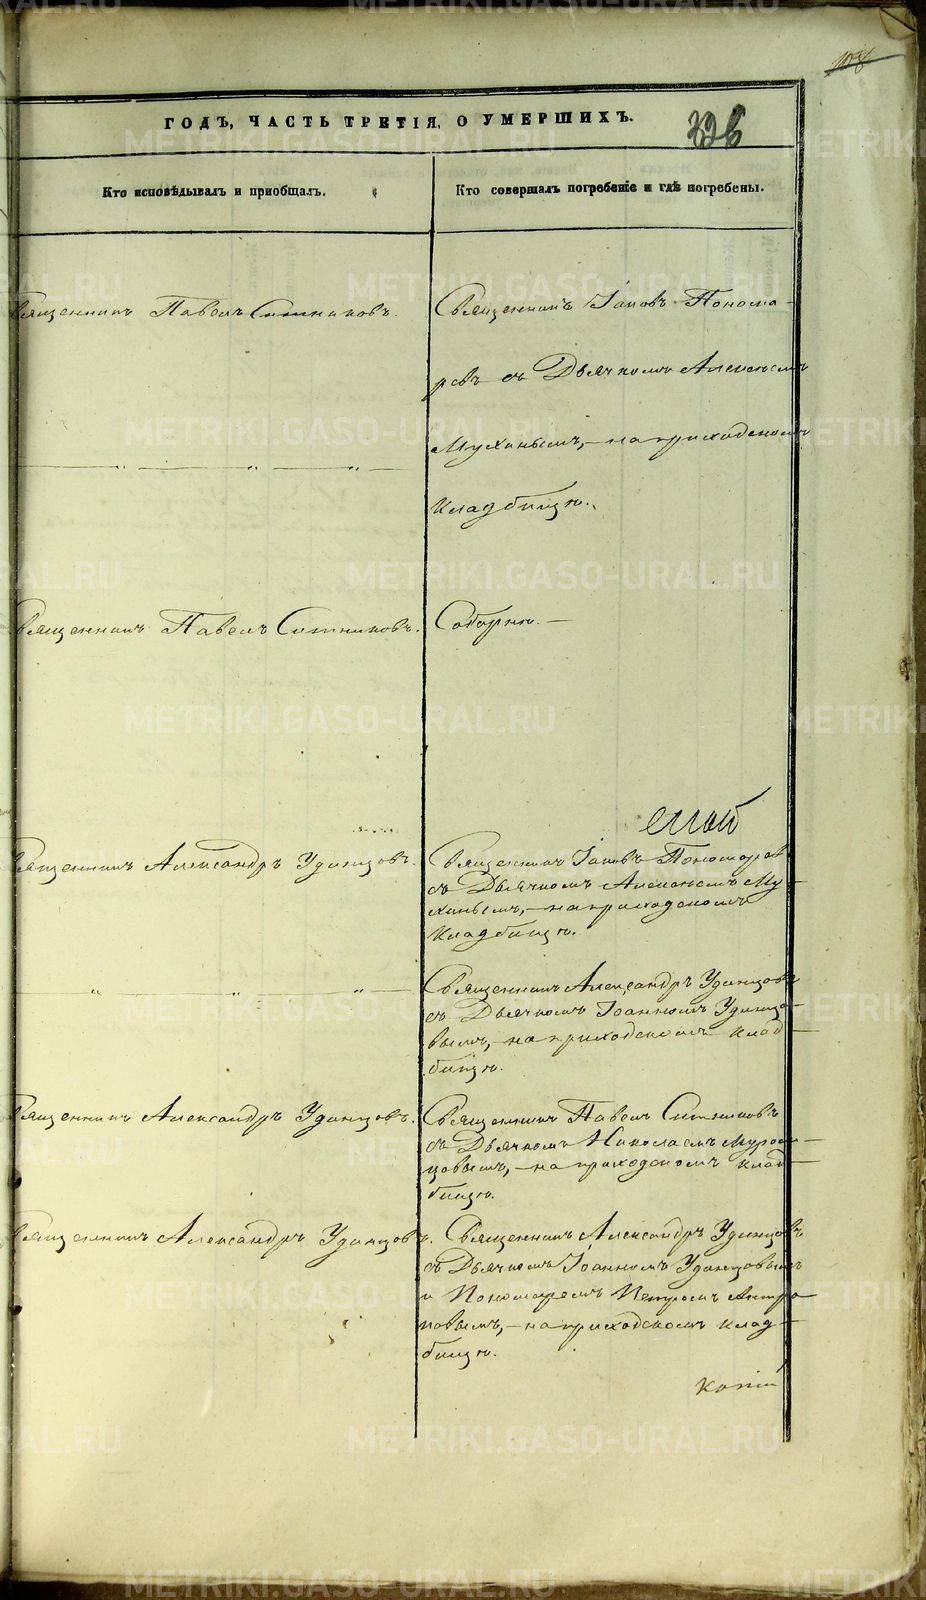 ГОДЪ, ЧАСТЬ ТРЕТІЯ, О УМЕРШИХЪ.
Кто исповѣдывалъ и пріобщалъ.
Кто совершалъ погребеніе и гдѣ погребены.
Священникъ Павелъ Ситниковъ.
Священникъ Іаковъ Понома-
ревъ съ Дьячкомъ Алексѣемъ
Мухинымъ, – на приходскомъ
кладбищѣ.
Священникъ Павелъ Ситниковъ.
Соборнѣ. –
Священникъ Александръ Удинцовъ.
Священникъ Іаковъ Пономаревъ
съ Дьячкомъ Алексѣемъ Му-
хинымъ, – на приходскомъ
кладбищѣ.
Священникъ Александръ Удинцовъ
съ Дьячкомъ Іоанномъ Удинцо-
вымъ, – на приходскомъ клад-
бищѣ.
Священникъ Александръ Удинцовъ.
Священникъ Павелъ Ситниковъ
съ Дьячкомъ Николаемъ
на приходскомъ клад-
бищѣ.
Священникъ Александръ Удинцовъ.
Священникъ Александръ Удинцовъ
съ Дьячкомъ Іоанномъ Удинцовымъ
и Пономаремъ Петромъ Антро-
повымъ, – на приходскомъ клад-
бищѣ.
METRIKI.GASO-URAL.RU